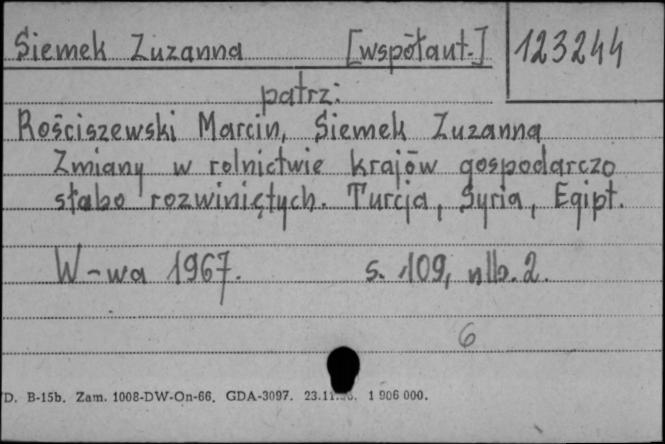 Siemek Zuzanna [współaut.] 123244
patrz:
Rościszewski Marcin, Siemek Zuzanna
Zmiany w rolnictwie krajów gospodarczo
słabo rozwiniętych. Turcja, Syria, Egipt.
W-wa 1967. s. 109, nlb. 2.
6
D. B-15b. Zam. 1008-DW-On-66. GDA-3097. 1 906 000.